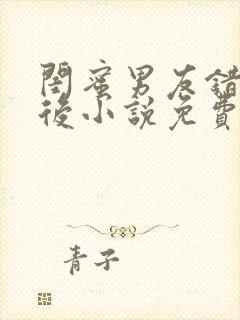 閨蜜男友錯
後小說免費
青子